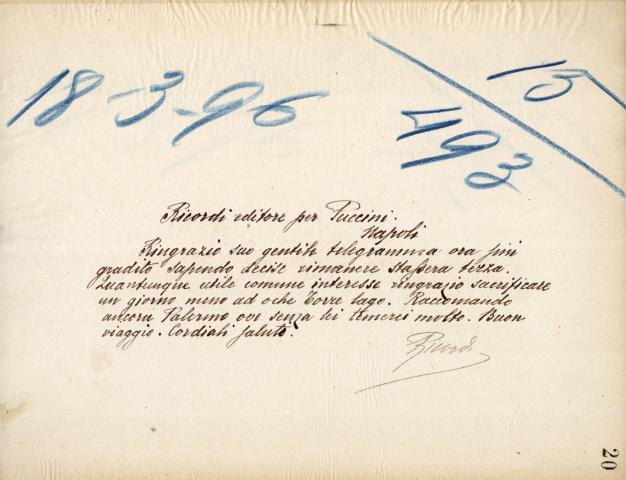 18-3-96
15
493
Ricordi editore per Puccini.
Napoli
Ringrazio suo gentile telegramma ora più
gradito sapendo decise rimanere stassera terza.
Quantunque utile comune interesse ringrazio sacrificare
un giorno meno ad oche Torre Lago. Raccomando
ancora Palermo ove senza lei temerei molto. Buon
viaggio. Cordiali saluti.
Ricordi
20